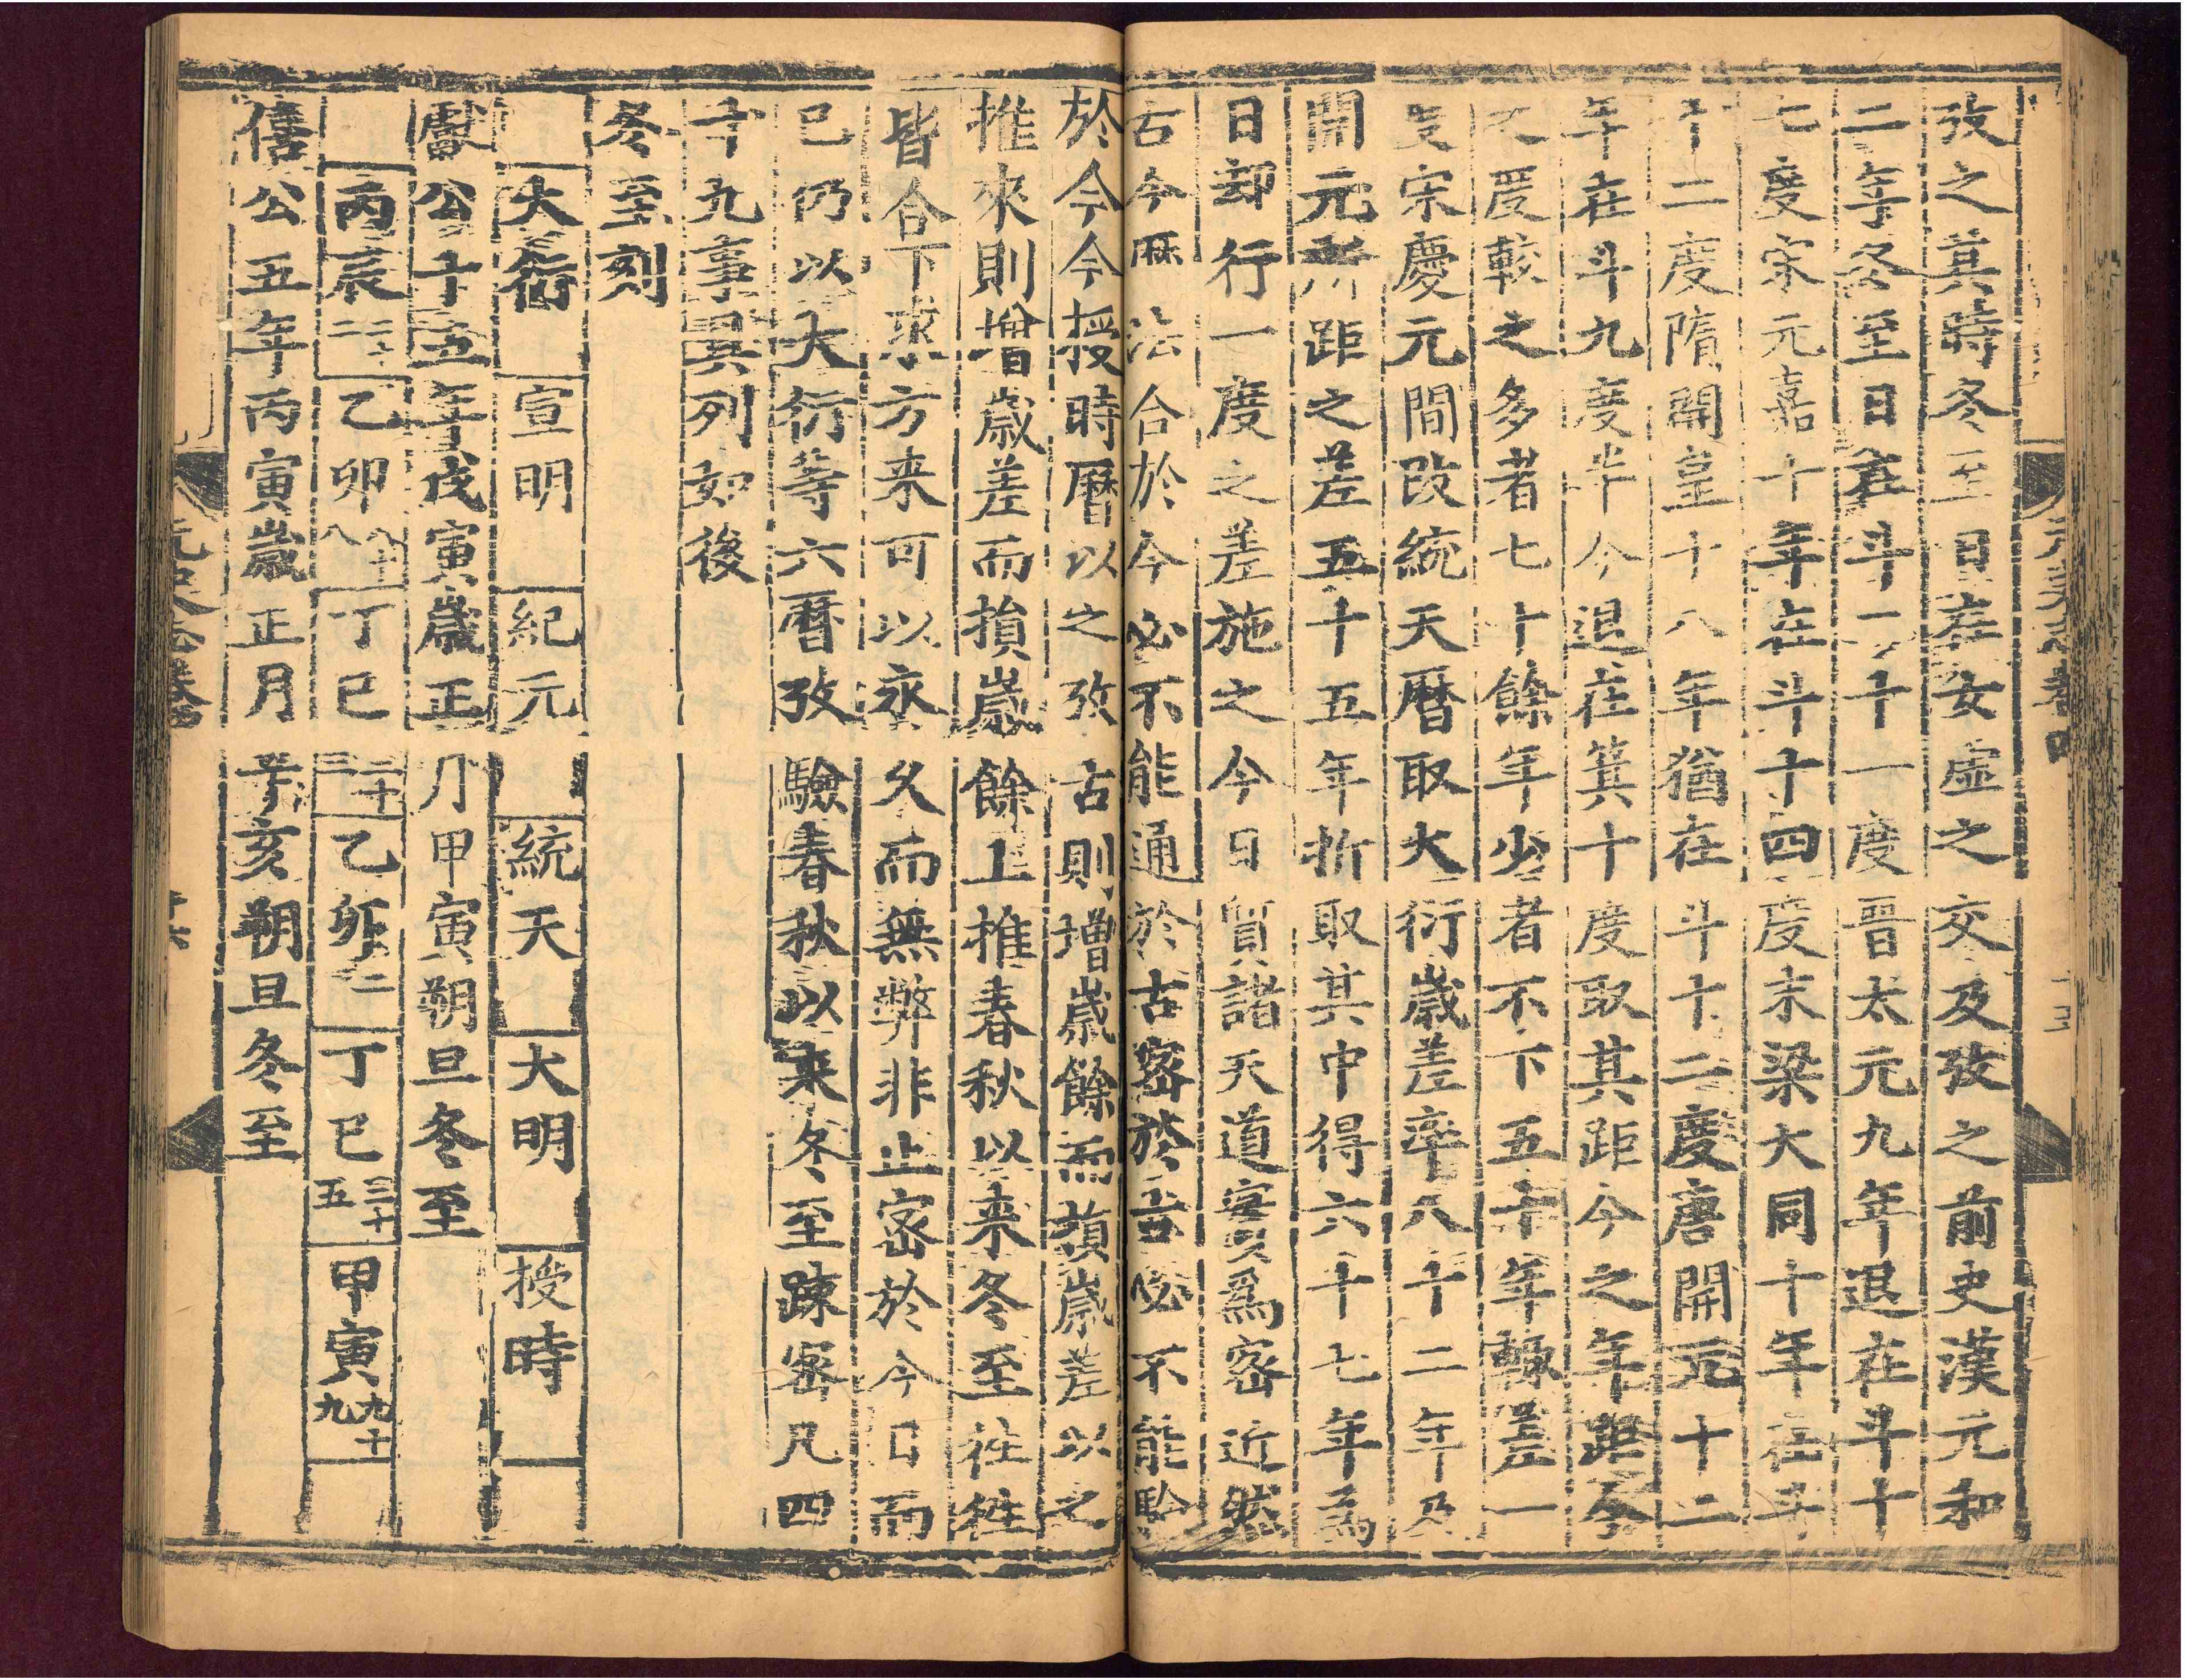 攷之其時冬至日在女虛之交及攷之前史漢元和
二年冬至日在斗二十一度晋太元九年退在斗十
七度宋元嘉十年在斗十四度末梁大同十年在斗
十二度隋開皇十八年猶在斗十二度唐開元十二
年在斗九度半今退在箕十度取其距今之年距今
之度較之多者七十餘年少者不下五十年輙差一
度宋慶元間改統天曆取大衍歲差率八十二年及
開元所距之差五十五年折取其中得六十七年爲
日却行一度之差施之今日質諸天道實爲密近然
古今曆法合於今必不能通於古密於古必不能驗
於今今授時曆以之攷古則増歲餘而損歲差以之
推來則增歲差而損歲餘上推春秋以来冬至往往
皆合下求方来可以永久而無弊非止密於今日而
已仍以大衍等六曆攷驗春秋以来冬至踈密凡四
十九事具列如後
冬至刻
大衍 宣明 紀元 統天 大明 授時
獻公十五年戊寅歲正月甲寅朔旦冬至
丙辰 乙卯 丁巳 乙卯二 丁巳三十五 甲寅九十九
僖公五年丙寅歲正月辛亥朔旦冬至